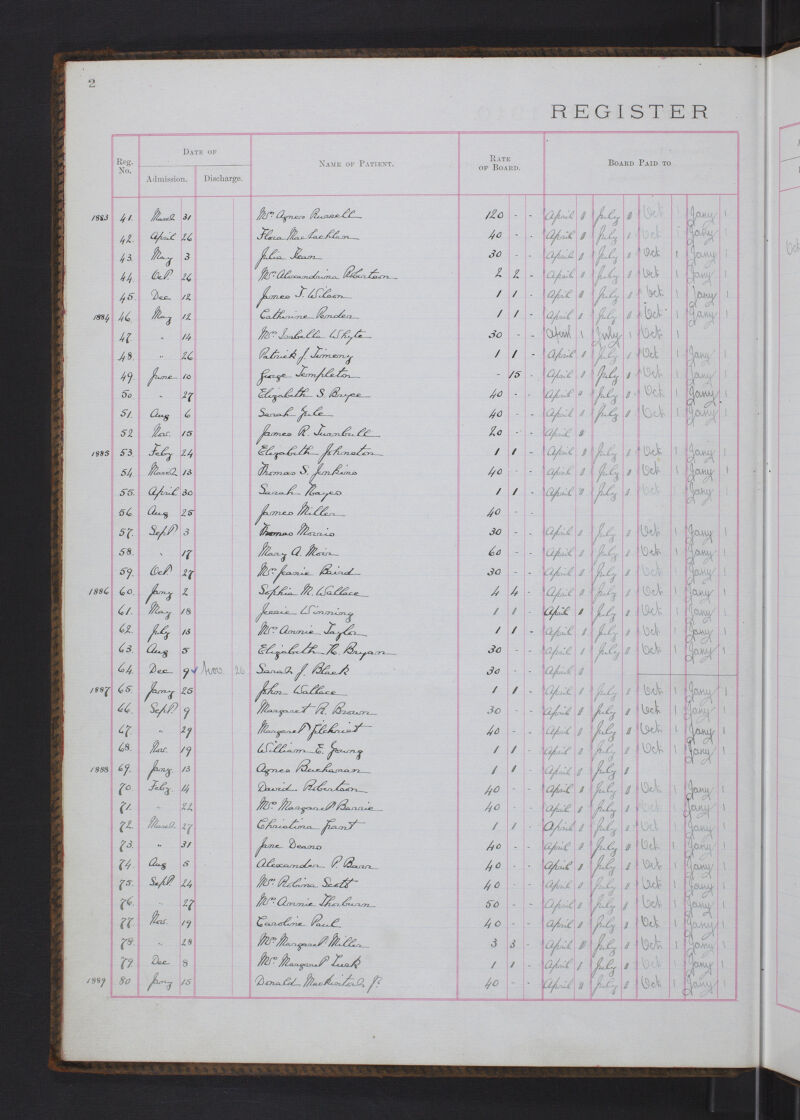 2
REGISTER
Reg. No. DATE OF Admission. Discharge. NAME OF PATIENT. RATE OF BOARD. BOARD PAID TO
1883 41. March 31 Mrs Agnes Russell 120 - - April 1 July 1 Oct 1 Jany 1
42. April 26 Flora MacLachlan 40 - - April 1 July 1 Oct 1 Jany 1
43. May 3 Julia 30 - - April 1 July 1 Oct 1 Jany 1
44. Oct. 26 Mrs Alexandrina Robertson 2 2 - April 1 July 1 Oct 1 Jany 1
45. Dec 12 James T. Wilson 1 1 - April 1 July 1 Oct 1 Jany 1
1884 46. May 12 Catherine Pender 1 1 - April 1 July 1 Oct 1 Jany 1
47. " 14 Mrs Isabella Whyte 30 - - April 1 July 1 Oct 1
48. " 26 Patrick J. Timony 1 1 - April 1 July 1 Oct 1 Jany 1
49. June 10 George Templeton - 15 - April 1 July 1 Oct 1 Jany 1
50 " 27 Elizabeth S. Bryce 40 - - April 1 July 1 Oct 1 Jany 1
51. Aug 6 Sarah Yule 40 - - April 1 July 1 Oct 1 Jany 1
52. Nov. 15 James R. Turnbull 20 - - April 1
1885 53. Feby 24 Elizabeth Johnston 1 1 - April 1 July 1 Oct 1 Jany 1
54. March 13 Thomas S. Jenkins 40 - - April 1 July 1 Oct 1 Jany 1
55. April 30 Sarah Hayes 1 1 - April 1 July 1 Oct 1 Jany 1
56. Aug 25 James Miller 40 - -
57. Sept. 3 Thomas Morris 30 - - April 1 July 1 Oct 1 Jany 1
58. " 17 Mary A. Moir 60 - - April 1 July 1 Oct 1 Jany 1
59. Oct 27 Mrs Jeanie Baird 30 - - April 1 July 1 Oct 1 Jany 1
1886 60. Jany 2 Sophia M. Wallace 4 4 - April 1 July 1 Oct 1 Jany 1
61. May 18 Jessie Winning 1 1 - April 1 July 1 Oct 1 Jany 1
62. July 13 Mrs Annie Taylor 1 1 - April 1 July 1 Oct 1 Jany 1
63. Aug 5 Elizabeth H. Bryan 30 - - April 1 July 1 Oct 1 Jany 1
64. Dec 9 Nov. 26 Sarah J. Black 30 - - April 1
1887 65. Jany 25 John Wallace 1 1 - April 1 July 1 Oct 1 Jany 1
66. Sept. 9 Margaret R. Brown 30 - - April 1 July 1 Oct 1 Jany 1
67. " 29 Margaret Gilchrist 40 - - April 1 July 1 Oct 1 Jany 1
68. Nov. 19 William E. Young 1 1 - April 1 July 1 Oct 1 Jany 1
1888 69. Jany 13 Agnes Buchanan 1 1 - April 1 July 1
70. Feby 14 David Robertson 40 - - April 1 July 1 Oct 1 Jany 1
71. " 22 Mrs Margaret Barrie 40 - - April 1 July 1 Oct 1 Jany 1
72. March 27 Christina Grant 1 1 - April 1 July 1 Oct 1 Jany 1
73. " 31 Jane Deans 40 - - April 1 July 1 Oct 1 Jany 1
74. Aug 5 Alexander P. Barr 40 - - April 1 July 1 Oct 1 Jany 1
75. Sept. 24 Mrs Robina Scott 40 - - April 1 July 1 Oct 1 Jany 1
76. " 27 Mrs Annie Thorburn 50 - - April 1 July 1 Oct 1 Jany 1
77. Nov. 19 Caroline Paul 40 - - April 1 July 1 Oct 1 Jany 1
78. " 28 Mrs Margaret Miller 3 3 - April 1 July 1 Oct 1 Jany 1
79. Dec 8 Mrs Margaret Lusk 1 1 - April 1 July 1 Oct 1 Jany 1
1889 80 Jany 15 Donald Mackintosh Jr. 40 - - April 1 July 1 Oct 1 Jany 1